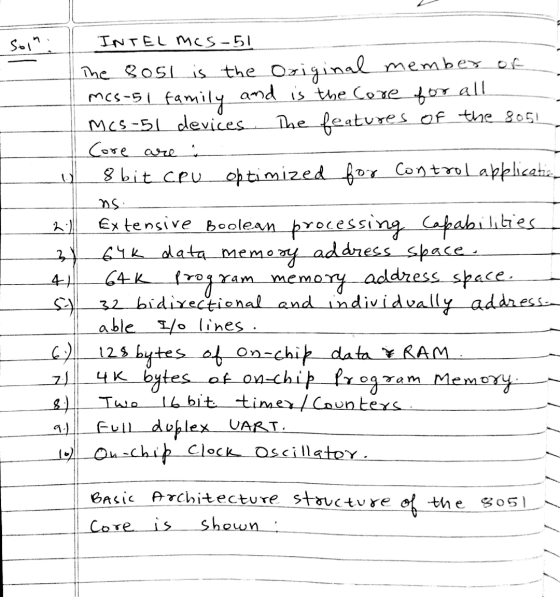 Solⁿ: INTEL MCS-51
The 8051 is the Original member of
MCS-51 family and is the Core for all
MCS-51 devices. The features of the 8051
Core are :
1) 8 bit CPU optimized for Control applicatio
ns.
2.) Extensive Boolean processing Capabilities
3) 64K data memory address space.
4) 64K Program memory address space.
5) 32 bidirectional and individually address-
able I/o lines.
6.) 128 bytes of On-chip data & RAM.
7) 4K bytes of on-chip Program Memory.
8.) Two 16 bit timer/Counters.
9.) Full duplex UART.
10) On-chip Clock Oscillator.
Basic Architecture structure of the 8051
Core is shown :